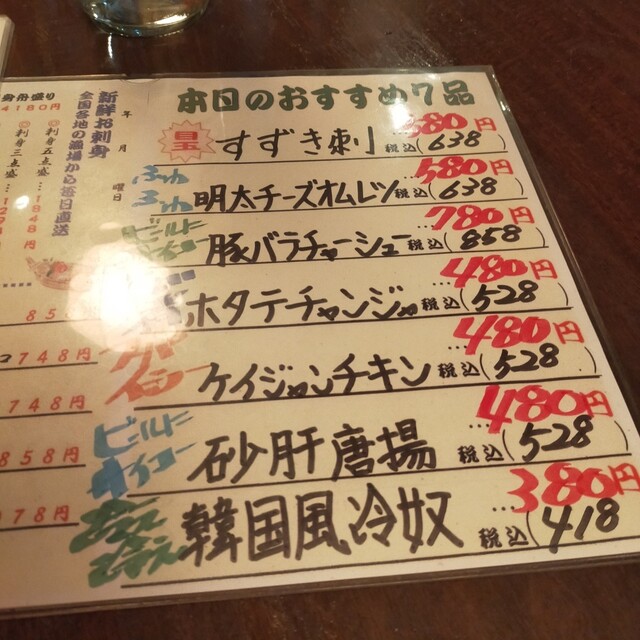 本日のおすすめ7品
目玉 すずき刺 …580円 税込(638)
ふわふわ 明太チーズオムレツ 580円 税込(638)
ビールにサイコー 豚バラチャーシュー 780円 税込(858)
ホタテチャンジャ …480円 税込(528)
ケイジャンチキン …480円 税込(528)
ビールにサイコー 砂肝唐揚 …480円 税込(528)
韓国風冷奴 …380円 税込(418)
年 月 曜日
新鮮お刺身
全国各地の漁場から毎日直送
◎刺身五点盛…1848円
◎刺身三点盛…
身舟盛り
4180円
748円
748円
858円
978円